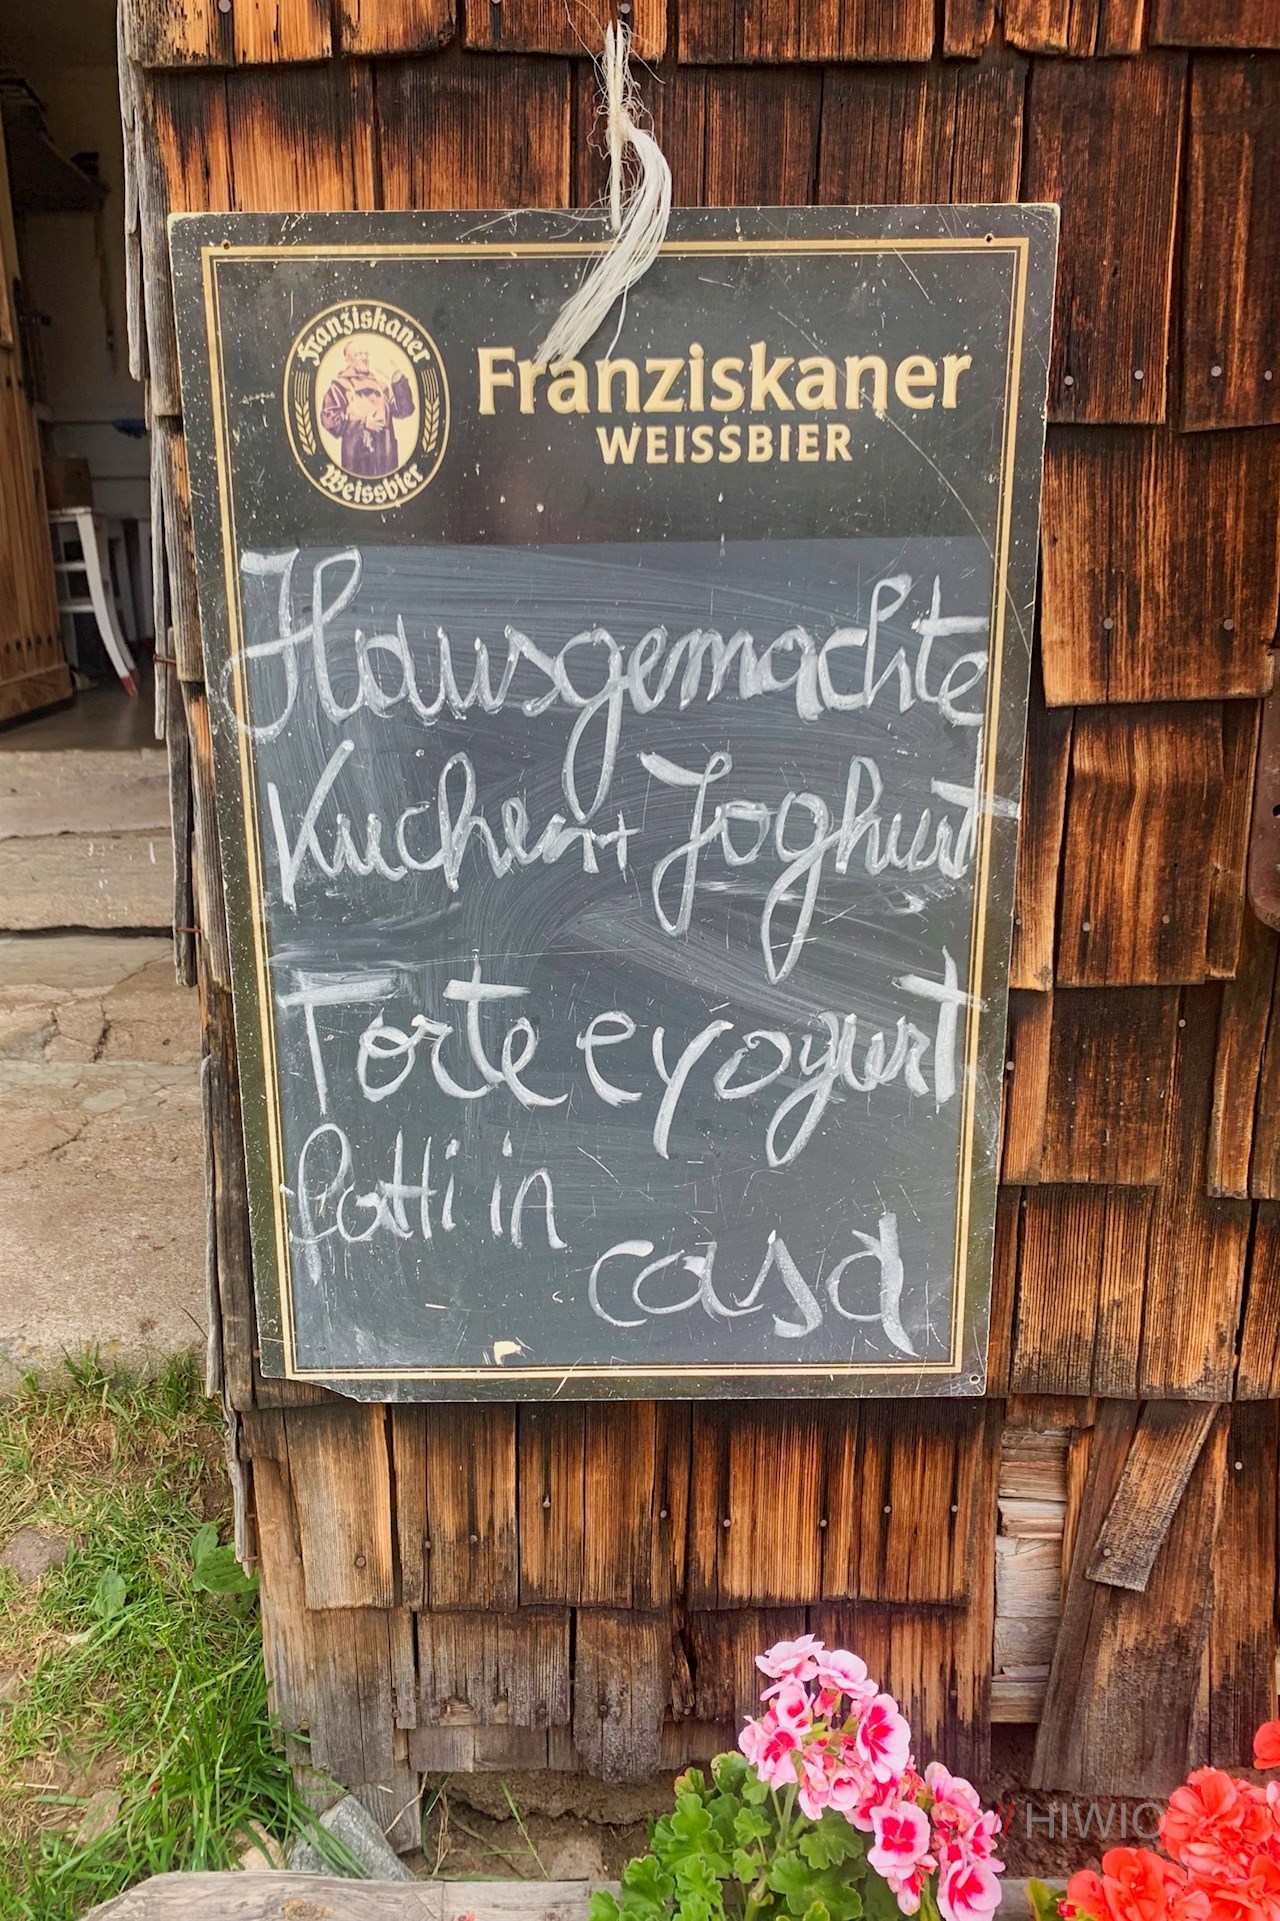 Franziskaner
Weissbier
Franziskaner
WEISSBIER
Hausgemachte
Kuchen + Joghurt
Torte e yogurt
fatti in
casa
// HIWIO